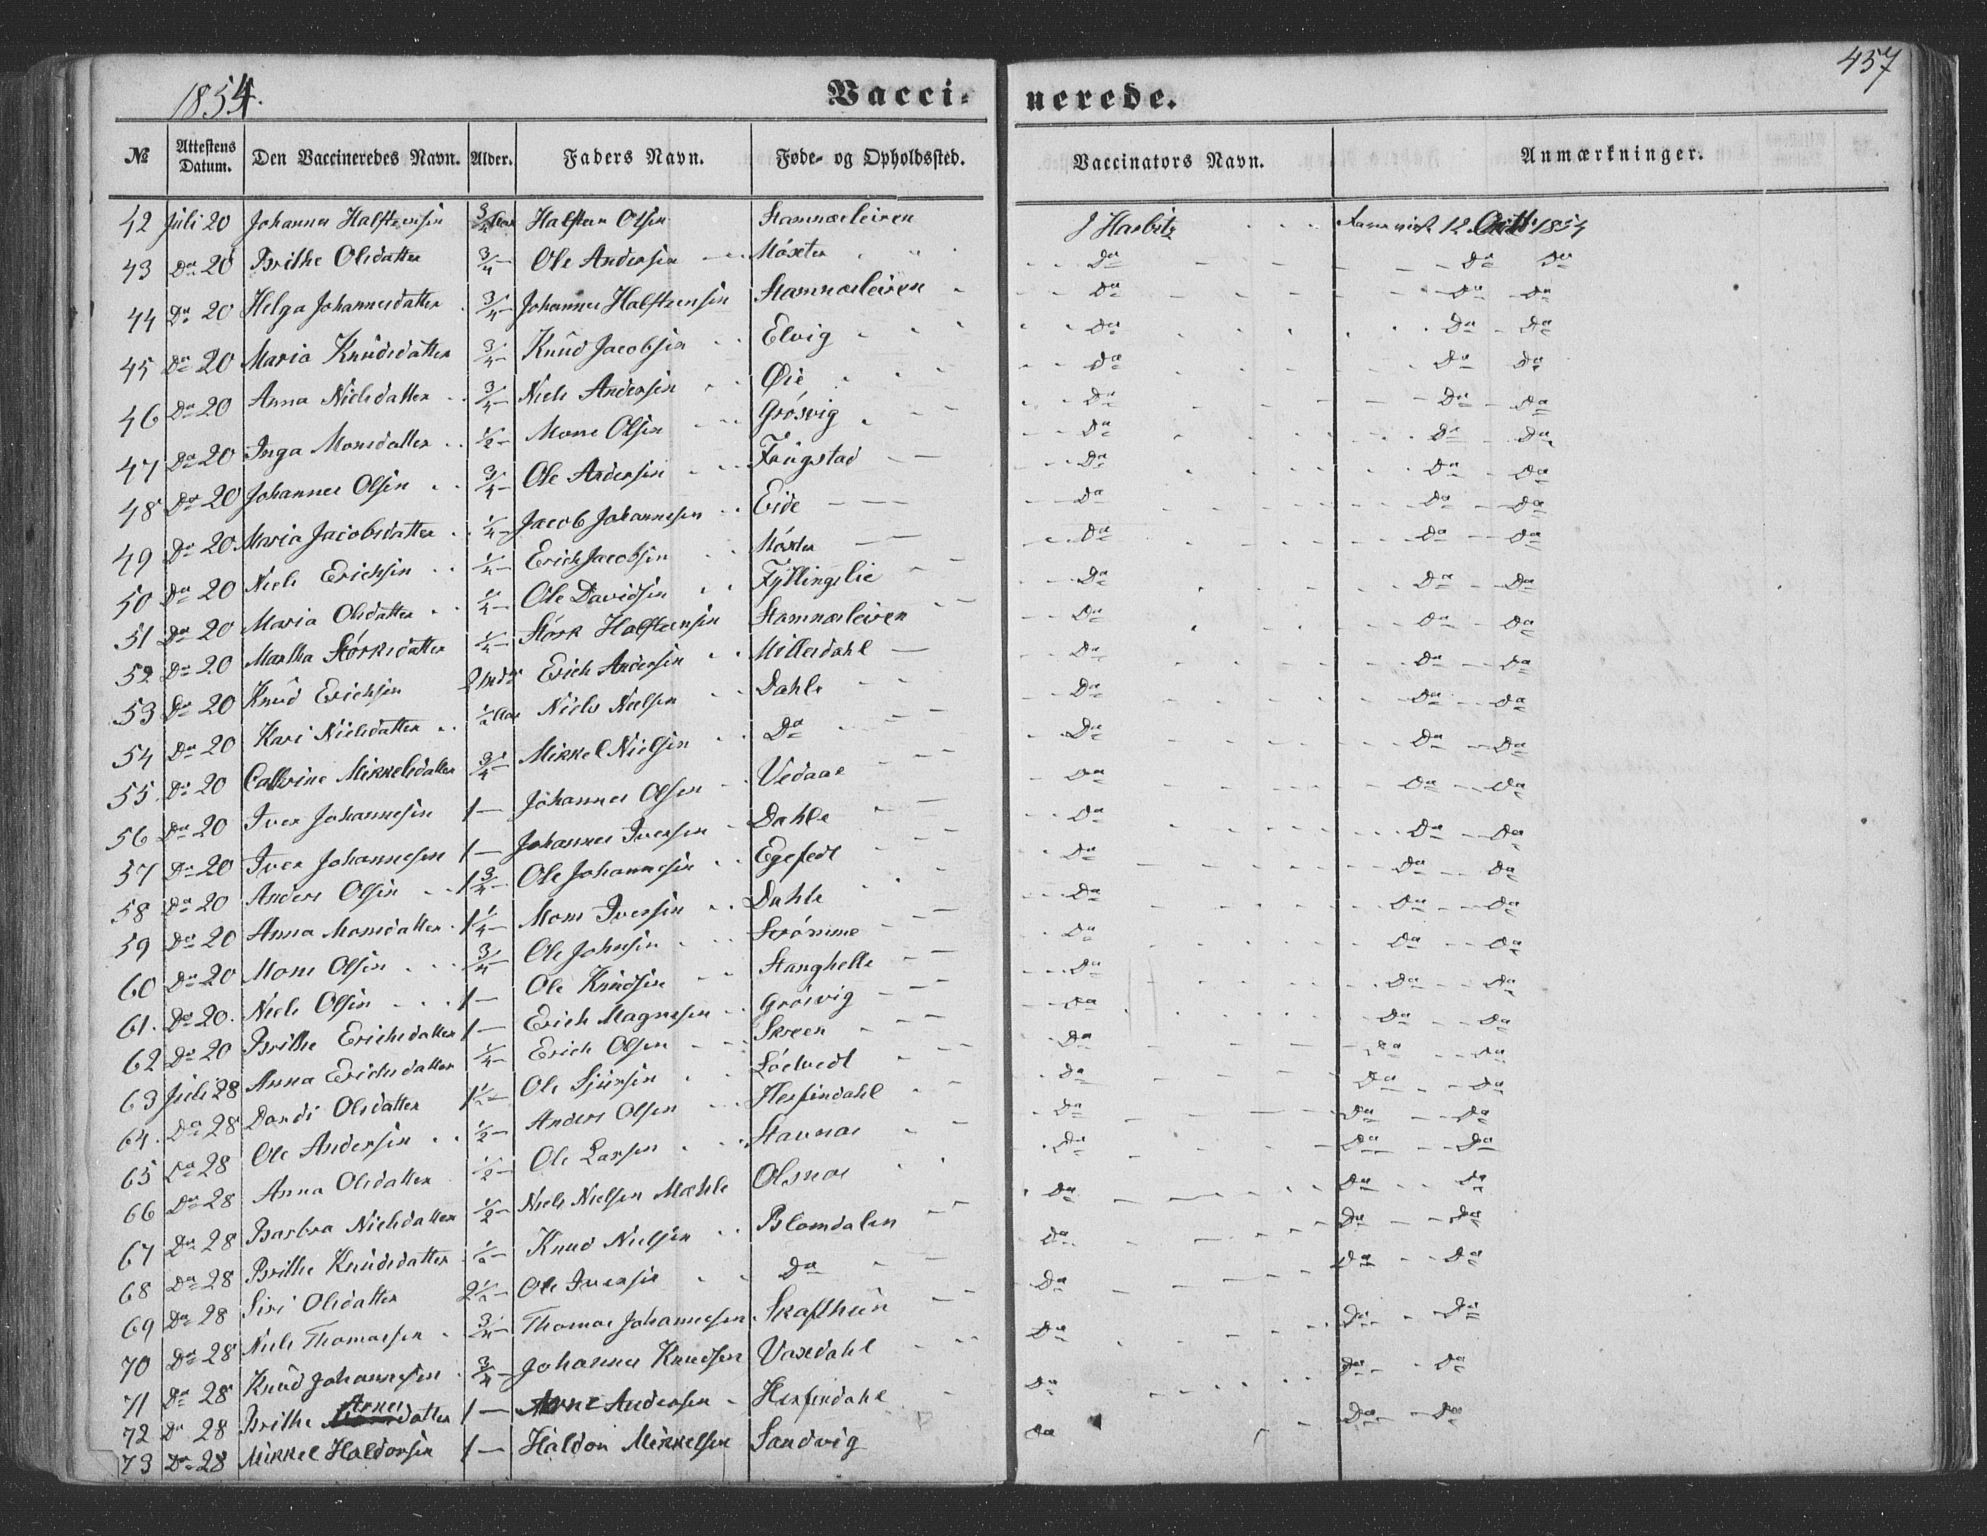 1854.
457
Vaccinerede.
№ Attestens Datum. Den Vaccineredes Navn. Alder. Faders Navn. Føde- og Opholdssted. Vaccinators Navn. Anmærkninger.
42 Juli 20 Johannes Halfstensen 3/4 Aar Halfsten Olsen Stamnæsleiren J Harbitz 12 1854
43 Do 20 Brithe Olsdatter 3/4 – Ole Andersen Møxter Do Do Do
44 Do 20 Helga Johannesdatter 3/4 – Johannes Halfstensen Stamnæsleiren Do Do Do
45 Do 20 Maria Knudsdatter 3/4 – Knud Jacobsen Elvig Do Do Do
46 Do 20 Anna Nielsdatter 3/4 – Niels Andersen Øie Do Do Do
47 Do 20 Inga Monsdatter 1/2 – Mons Olsen Grøsvig Do Do Do
48 Do 20 Johannes Olsen 3/4 – Ole Andersen Do Do Do
49 Do 20 Maria Jacobsdatter 1/4 – Jacob Johannesen Eide Do Do Do
50 Do 20 Niels Erichsen 1/4 – Erich Jacobsen Møxter Do Do Do
51 Do 20 Maria Olsdatter 1/4 – Ole Davidsen Fyllingslie Do Do Do
52 Do 20 Martha Størksdatter 1/4 – Størk Halfstensen Stamnæsleiren Do Do Do
53 Do 20 Knud Erichsen 2 Mdr Erich Andersen Millesdahl Do Do Do
54 Do 20 Kari Nielsdatter 1/2 Aar Niels Nielsen Dahle Do Do Do
55. Do 20 Cathrine Mikkelsdatter 3/4 – Mikkel Nielsen Do Do Do Do
56 Do 20 Iver Johannesen 1 – Johannes Olsen Vedaae Do Do Do
57 Do 20 Iver Johannesen 1 – Johannes Iversen Dahle Do Do Do
58 Do 20 Anders Olsen 1 3/4 – Ole Johannesen Do Do Do
59 Do 20 Anna Monsdatter 1 1/4 – Mons Iversen Dahle Do Do Do
60 Do 20 Mons Olsen 3/4 – Ole Johnsen Strømme Do Do Do
61. Do 20. Niels Olsen 1 – Ole Knudsen Stanghelle Do Do Do
62 Do 20 Brithe Erichsdatter 1 – Erich Magnesen Grøsvig Do Do Do
63 Juli 28 Anna Erichsdatter 1/4 – Erich Olsen Skreen Do Do Do
64. Do 28 Dordi Olsdatter 1 1/2 – Ole Sjursen Do Do Do
65 Do 28 Ole Andersen 1/2 – Anders Olsen Hesfindahl Do Do Do
66 Do 28 Anna Olsdatter 1/2 – Ole Larsen Stavnæs Do Do Do
67 Do 28 Barbra Nielsdatter 1/2 – Niels Nielsen Mæhle Olsnæs Do Do Do
68 Do 28 Brithe Knudsdatter 1/2 – Knud Nielsen Blomdalen Do Do Do
69 Do 28 Siri Olsdatter 2 1/2 – Ole Iversen Do Do Do Do
70 Do 28 Niels Thomassen 3/4 – Thomas Johannesen Skafthun Do Do Do
71 Do 28 Knud Johannesen 3/4 – Johannes Knudsen Vaxdahl Do Do Do
72 Do 28 Brithe Arnesdatter 1 – Arne Andersen Hesfindahl Do Do Do
73 Do 28 Mikkel Haldorsen 1 – Haldor Mikkelsen Sandvig Do